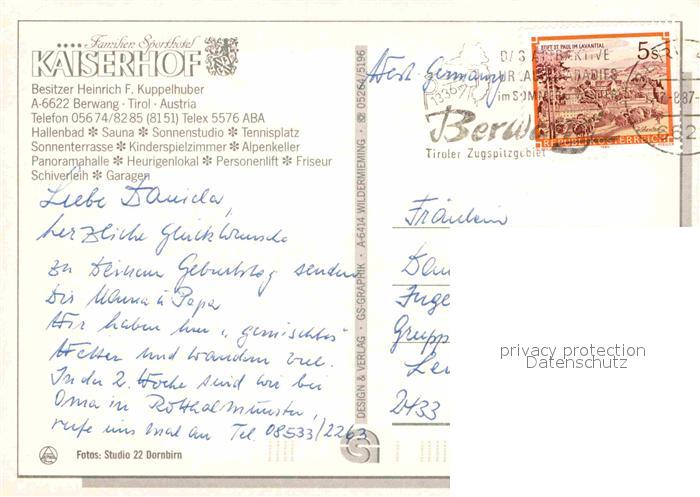 Familien Sporthotel
KAISERHOF
Besitzer Heinrich F. Kuppelhuber
A-6622 Berwang · Tirol · Austria
Telefon 05674/8285 (8151) Telex 5576 ABA
Hallenbad ✻ Sauna ✻ Sonnenstudio ✻ Tennisplatz
Sonnenterrasse ✻ Kinderspielzimmer ✻ Alpenkeller
Panoramahalle ✻ Heurigenlokal ✻ Personenlift ✻ Friseur
Schiverleih ✻ Garagen
Liebe Daniela,
herzliche Glückwünsche
zu Deinem Geburtstag senden
Dir Mama u Papa
Wir haben hier "gemischtes"
Wetter und wandern viel.
In der 2. Woche sind wir bei
Oma in Rotthalmünster,
rufe uns mal an Tel. 08533/2263
Fotos: Studio 22 Dornbirn
DESIGN & VERLAG · GS-GRAPHIK · A-6414 WILDERMIEMING · 05264/5196
West-Germany
STIFT ST. PAUL IM LAVANTTAL
5 S
REPUBLIK ÖSTERREICH
1336m
Berwang
Tiroler Zugspitzgebiet
Fräulein
Dan
Juge
Grupp
Len
2433
privacy protection
Datenschutz